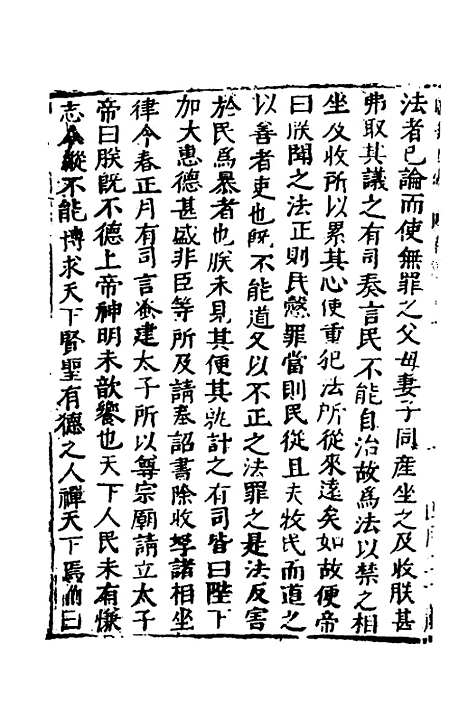 法者已論而使無罪之父母妻子同産坐之及收朕甚
弗取其議之有司奏言民不能自治故爲法以禁之相
坐及收所以累其心使重犯法所從來遠矣如故便帝
曰朕聞之法正則民慤罪當則民從且夫牧民而道之
以善者吏也旣不能道又以不正之法罪之是法反害
於民爲暴者也朕未見其便其孰計之有司皆曰陛下
加大惠德甚盛非臣等所及請奉詔書除收孥諸相坐
律令春正月有司言蚤建太子所以尊宗廟請立太子
帝曰朕旣不德上帝神明未歆饗也天下人民未有慊
志今縱不能博求天下賢聖有德之人禪天下焉而曰